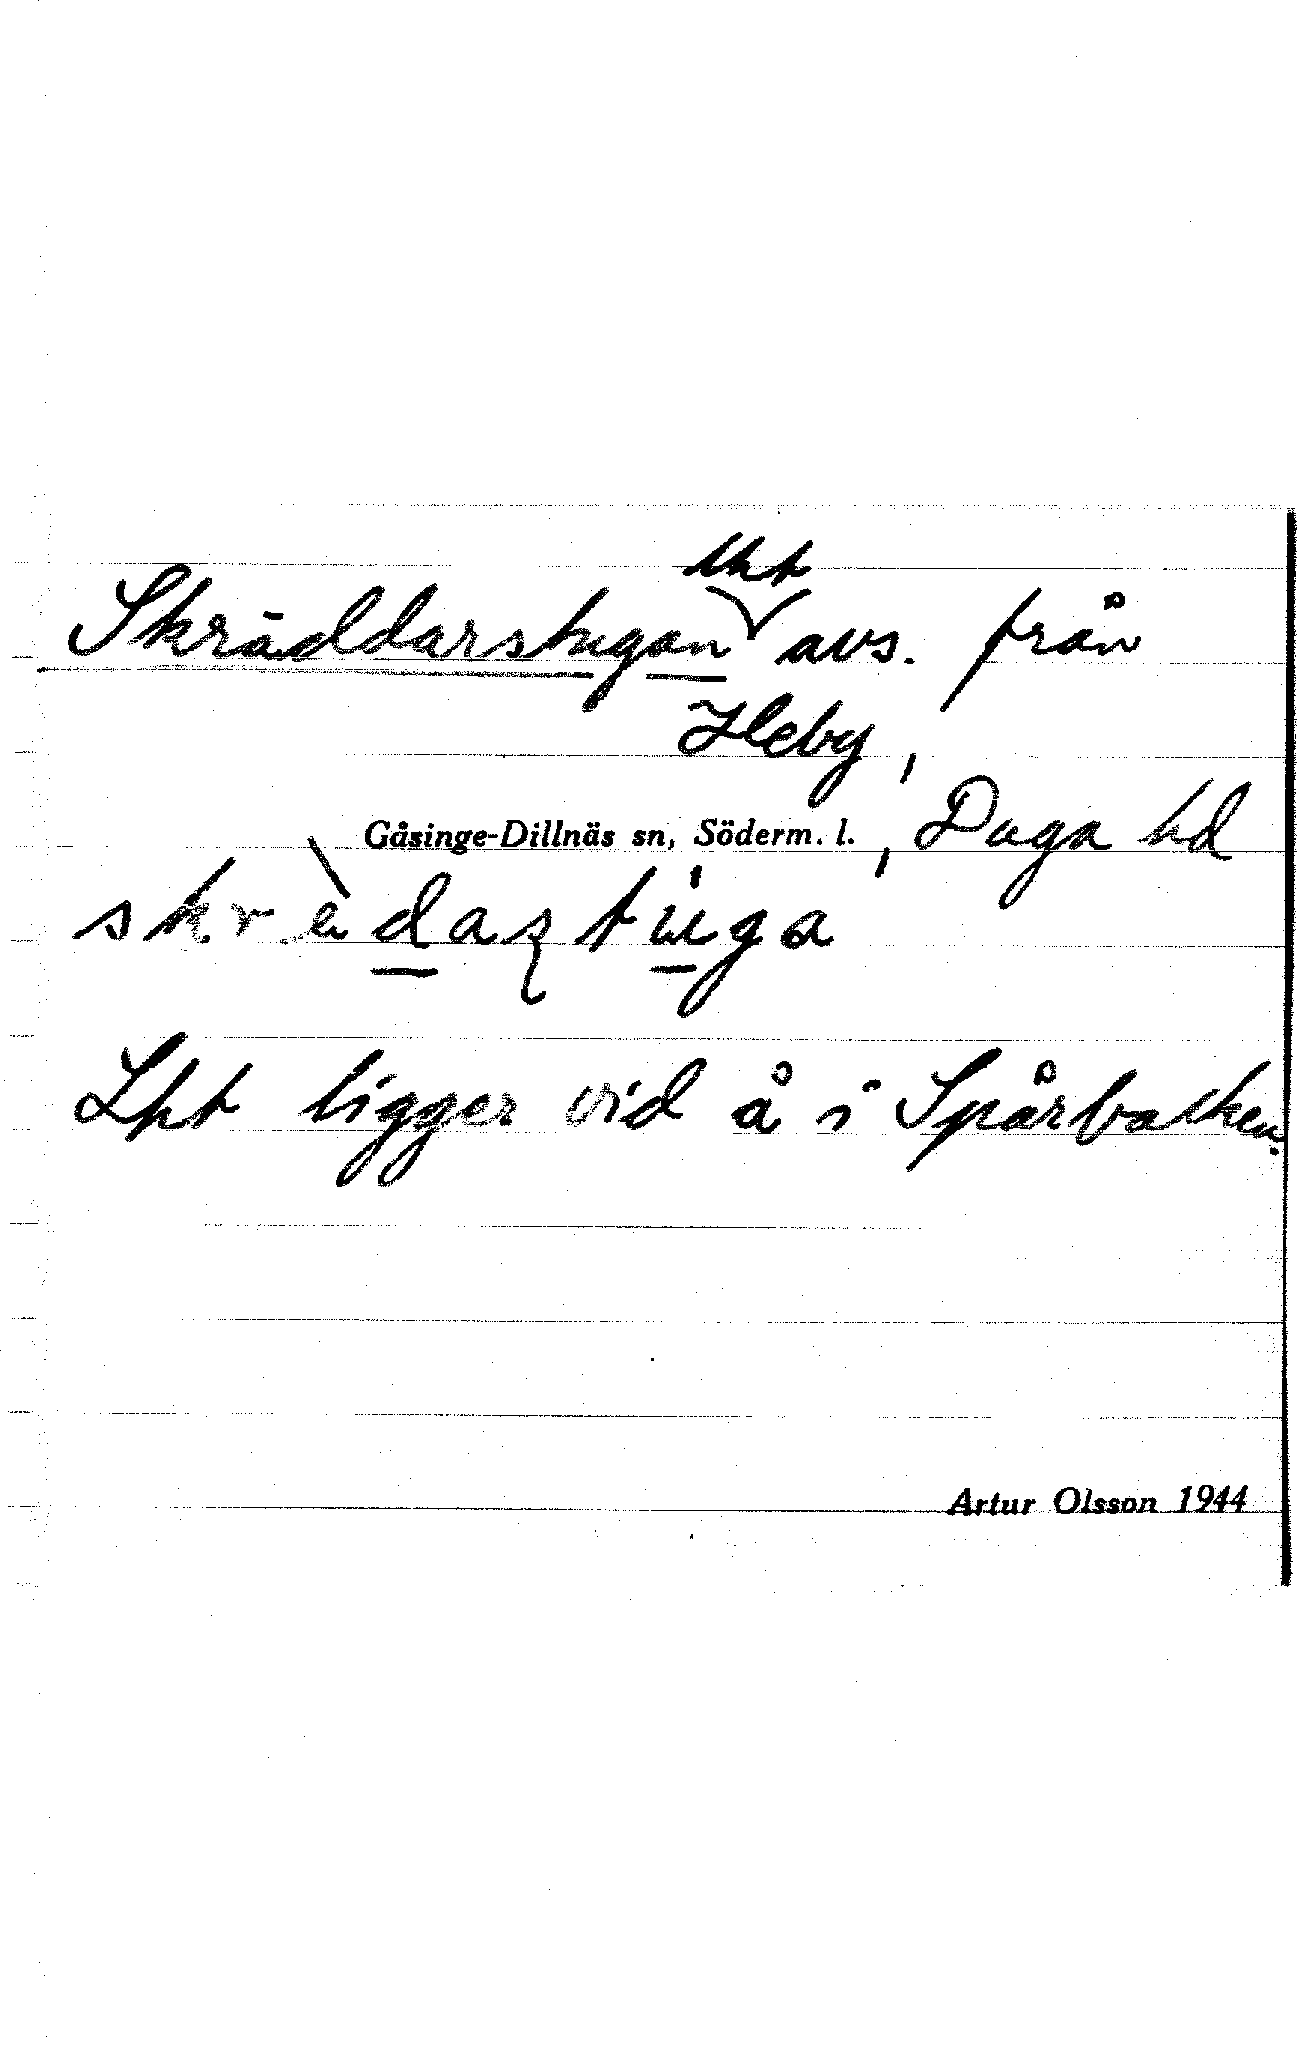 Skräddarstugan lht avs. från
Heby,
Gåsinge-Dillnäs sn, Söderm. l., Daga hd
skrèdaʂtu̇ga
Lht ligger vid å i Spårbacken.
Artur Olsson 1944